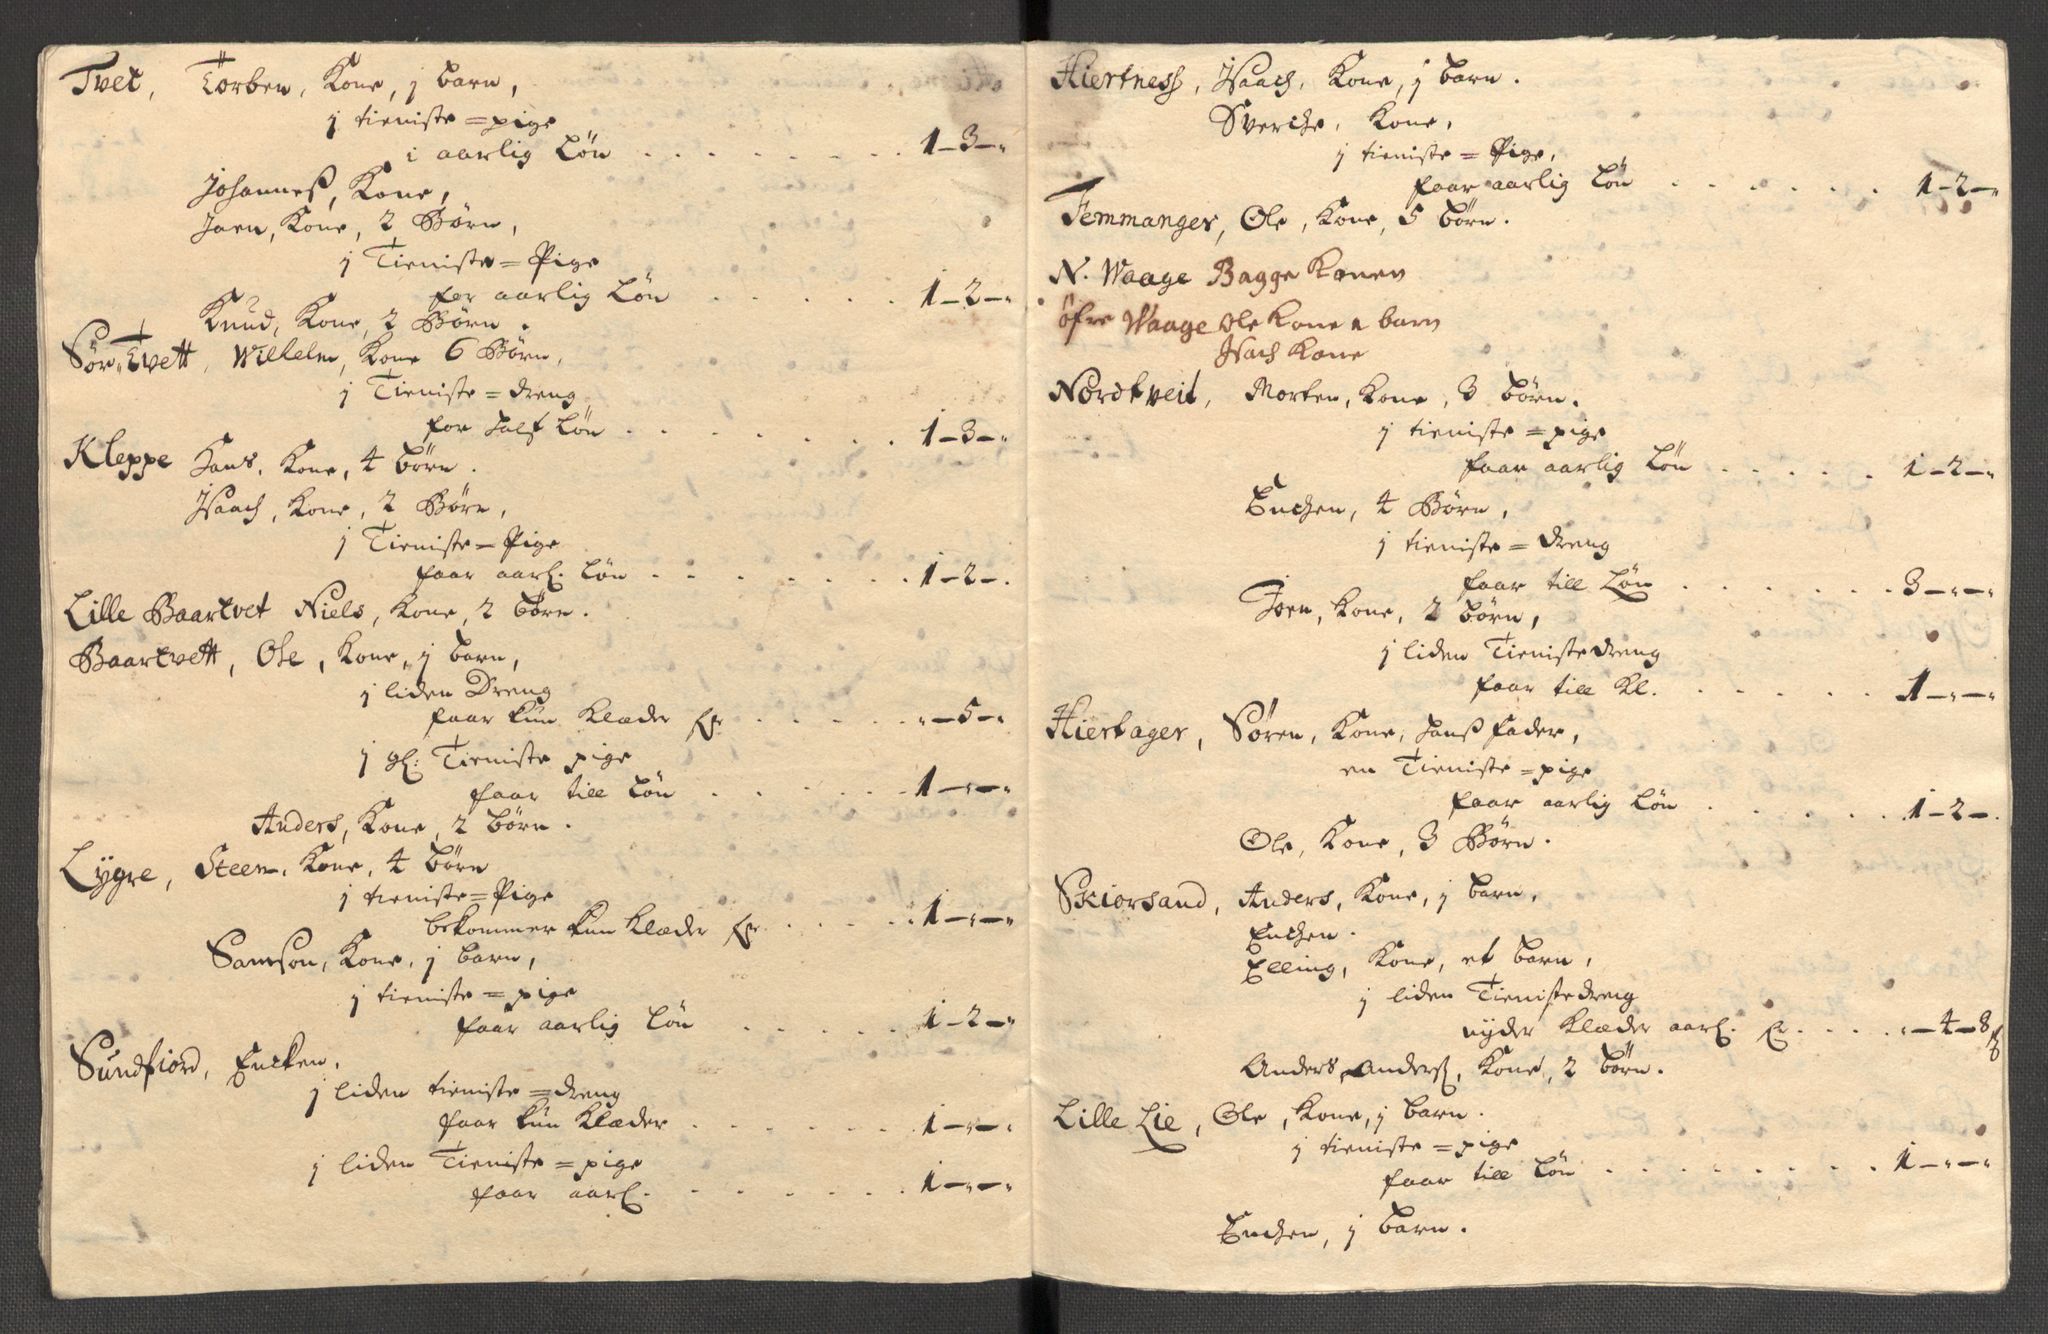 Tvet, Torben, Kone, j barn,
j tieniste=pige
i aarlig Løn . . . . . . . 1-3-"
Johanneß, Kone,
Joen, Kone, 2 Børn,
j Tieniste=Pige
for aarlig Løn . . . . . 1-2-"
Knud, Kone, 2 Børn.
Sør-Tvett, Wilhelm, Kone 6 Børn,
j Tieniste=dreng
for half Løn . . . . . . . 1-3-"
Kleppe Hans, Kone, 4 børn.
Isaach, Kone, 2 Børn,
j Tieniste=Pige
faar aarl. Løn . . . . . . . 1-2-.
Lille Baartvet Niels, Kone, 2 børn.
Baartvett, Ole, Kone, j barn,
j liden Dreng
faar kun Klæder for . . . . . "-5-"
j gl: Tieniste pige
faar till Løn . . . . . 1-"-"
Anders, Kone, 2 børn.
Lygre, Steen, Kone, 4 børn
j tieniste=Pige
bekommer kun Klæder for . . . . 1-"-"
Samson, Kone, j barn,
j tieniste=pige
faar aarlig Løn . . . . . 1-2-"
Sundfiord, Encken,
j liden tieniste=dreng
faar kun Klæder . . . . . . 1-"-"
j liden Tieniste=pige
faar aarl. . . . . . . 1-"-"
Hiertness, Isaach, Kone, j barn.
Sverche, Kone,
j tieniste=Pige,
faar aarlig Løn . . . . . . 1-2-"
Femmanger, Ole, Kone, 5 børn.
N. Waage Bagge Konen
øfre Waage Ole Kone 1 barn
Isach Kone
Nordtveit, Morten, Kone, 3 børn.
j tieniste=pige
faar aarlig Løn . . . . . 1-2-"
Enchen, 4 Børn,
j tieniste=dreng
faar till Løn . . . . . . 3-"-"
Joen, Kone, 2 børn,
j liden Tienistedreng
faar till Kl. . . . . . 1-"-"
Hiertager, Søren, Kone, hanß fader,
en Tieniste=pige
faar aarlig Løn . . . . . 1-2-.
Ole, Kone, 3 Børn.
Skiorsand, Anders, Kone, j barn,
Enchen.
Elling, Kone, et barn,
j liden Tienistedreng
nyder Klæder aarl. for . . . . "-4-8 ß
Anders Anderß, Kone, 2 børn.
Lille Lie, Ole, Kone, j barn.
j tieniste=pige
faar till Løn . . . . . . . . 1-"-"
Enchen, j barn.